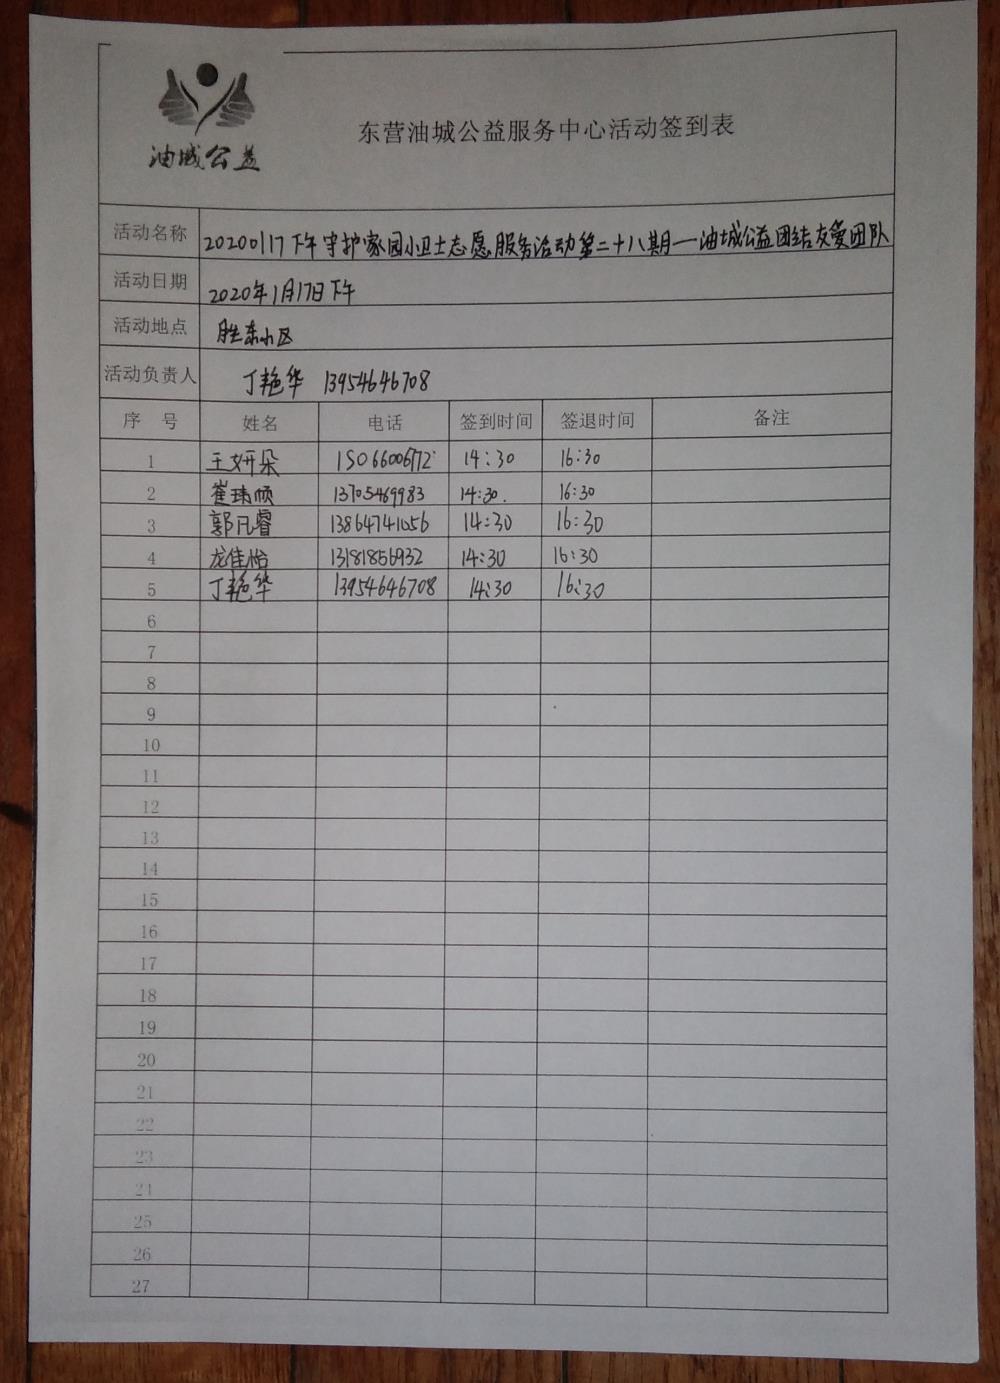 油城公益
东营油城公益服务中心活动签到表
活动名称 20200117下午守护家园小卫士志愿服务活动第二十八期—油城公益团结友爱团队
活动日期 2020年1月17日下午
活动地点 胜东小区
活动负责人 丁艳华 13954646708
序 号 姓名 电话 签到时间 签退时间 备注
1 王妍朵 15066006772 14:30 16:30
2 崔琦顺 13705469983 14:30. 16:30
3 郭凡睿 13864741056 14:30 16:30
4 龙佳怡 13181856932 14:30 16:30
5 丁艳华 13954646708 14:30 16:30
6
7
8
9
10
11
12
13
14
15
16
17
18
19
20
21
22
23
24
25
26
27